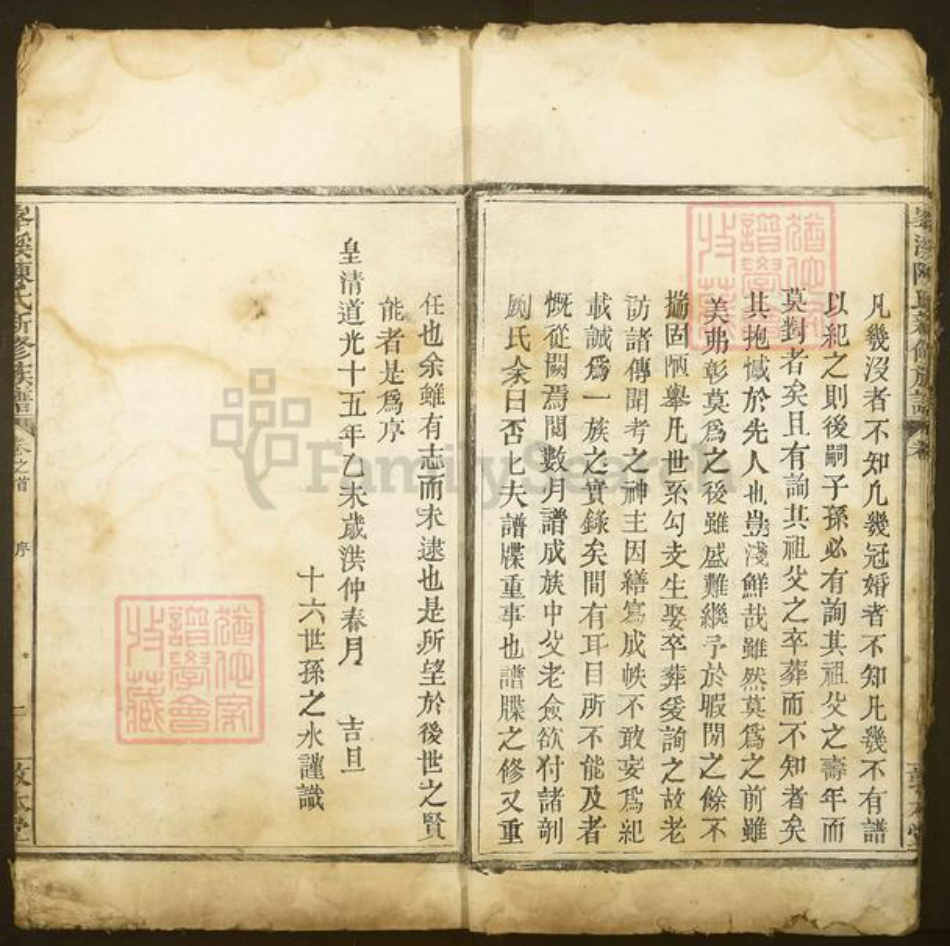 凡幾沒者不知凡幾冠婚者不知凡幾不有譜
以紀之則後嗣子孫必有詢其祖父之壽年而
莫對者矣且有詢其祖父之卒葬而不知者矣
其抱憾於先人也豈淺鮮哉雖然莫爲之前雖
美弗彰莫爲之後雖盛難繼予於暇閒之餘不
揣固陋舉凡世系勾支生娶卒葬爰詢之故老
訪諸傳聞考之神主因繕寫成帙不敢妄爲紀
載誠爲一族之實錄矣間有耳目所不能及者
慨從闕焉閱數月譜成族中父老僉欲付諸剞
劂氏余曰否匕夫譜牒重事也譜牒之修又重
任也余雖有志而未逮也是所望於後世之賢
能者是爲序
皇清道光十五年乙未歲洪仲春月 吉旦
十六世孫之水謹識
峯溪陳氏新修族譜 卷之首 序 一 敦本堂
譜學會
收藏
FamilySearch